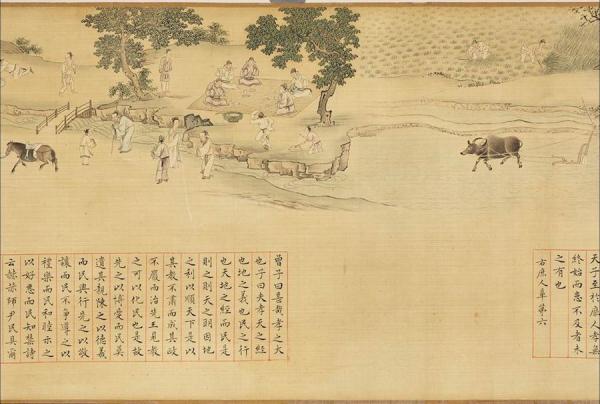 天子至於庶人孝無
終始而患不及者未
之有也
右庶人章第六
曾子曰甚哉孝之大
也子曰夫孝天之經
也地之義也民之行
也天地之經而民是
則之則天之明因地
之利以順天下是以
其教不肅而成其政
不嚴而治先王見教
之可以化民也是故
先之以博愛而民莫
遺其親陳之以德義
而民興行先之以敬
讓而民不爭導之以
禮樂而民和睦示之
以好惡而民知禁詩
云赫赫師尹民具爾